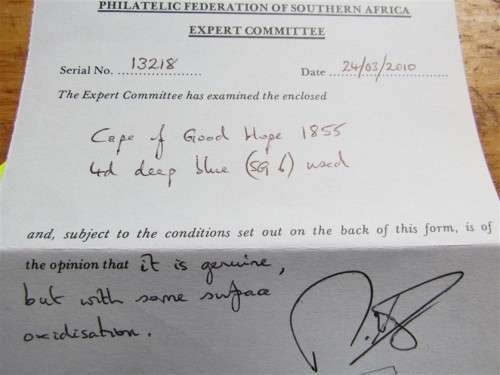 PHILATELIC FEDERATION OF SOUTHERN AFRICA
EXPERT COMMITTEE
Serial No. 13218 Date 24/03/2010
The Expert Committee has examined the enclosed
Cape of Good Hope 1855
4d deep blue (SG 6) used
and, subject to the conditions set out on the back of this form, is of
the opinion that it is genuine,
but with some surface
oxidisation.